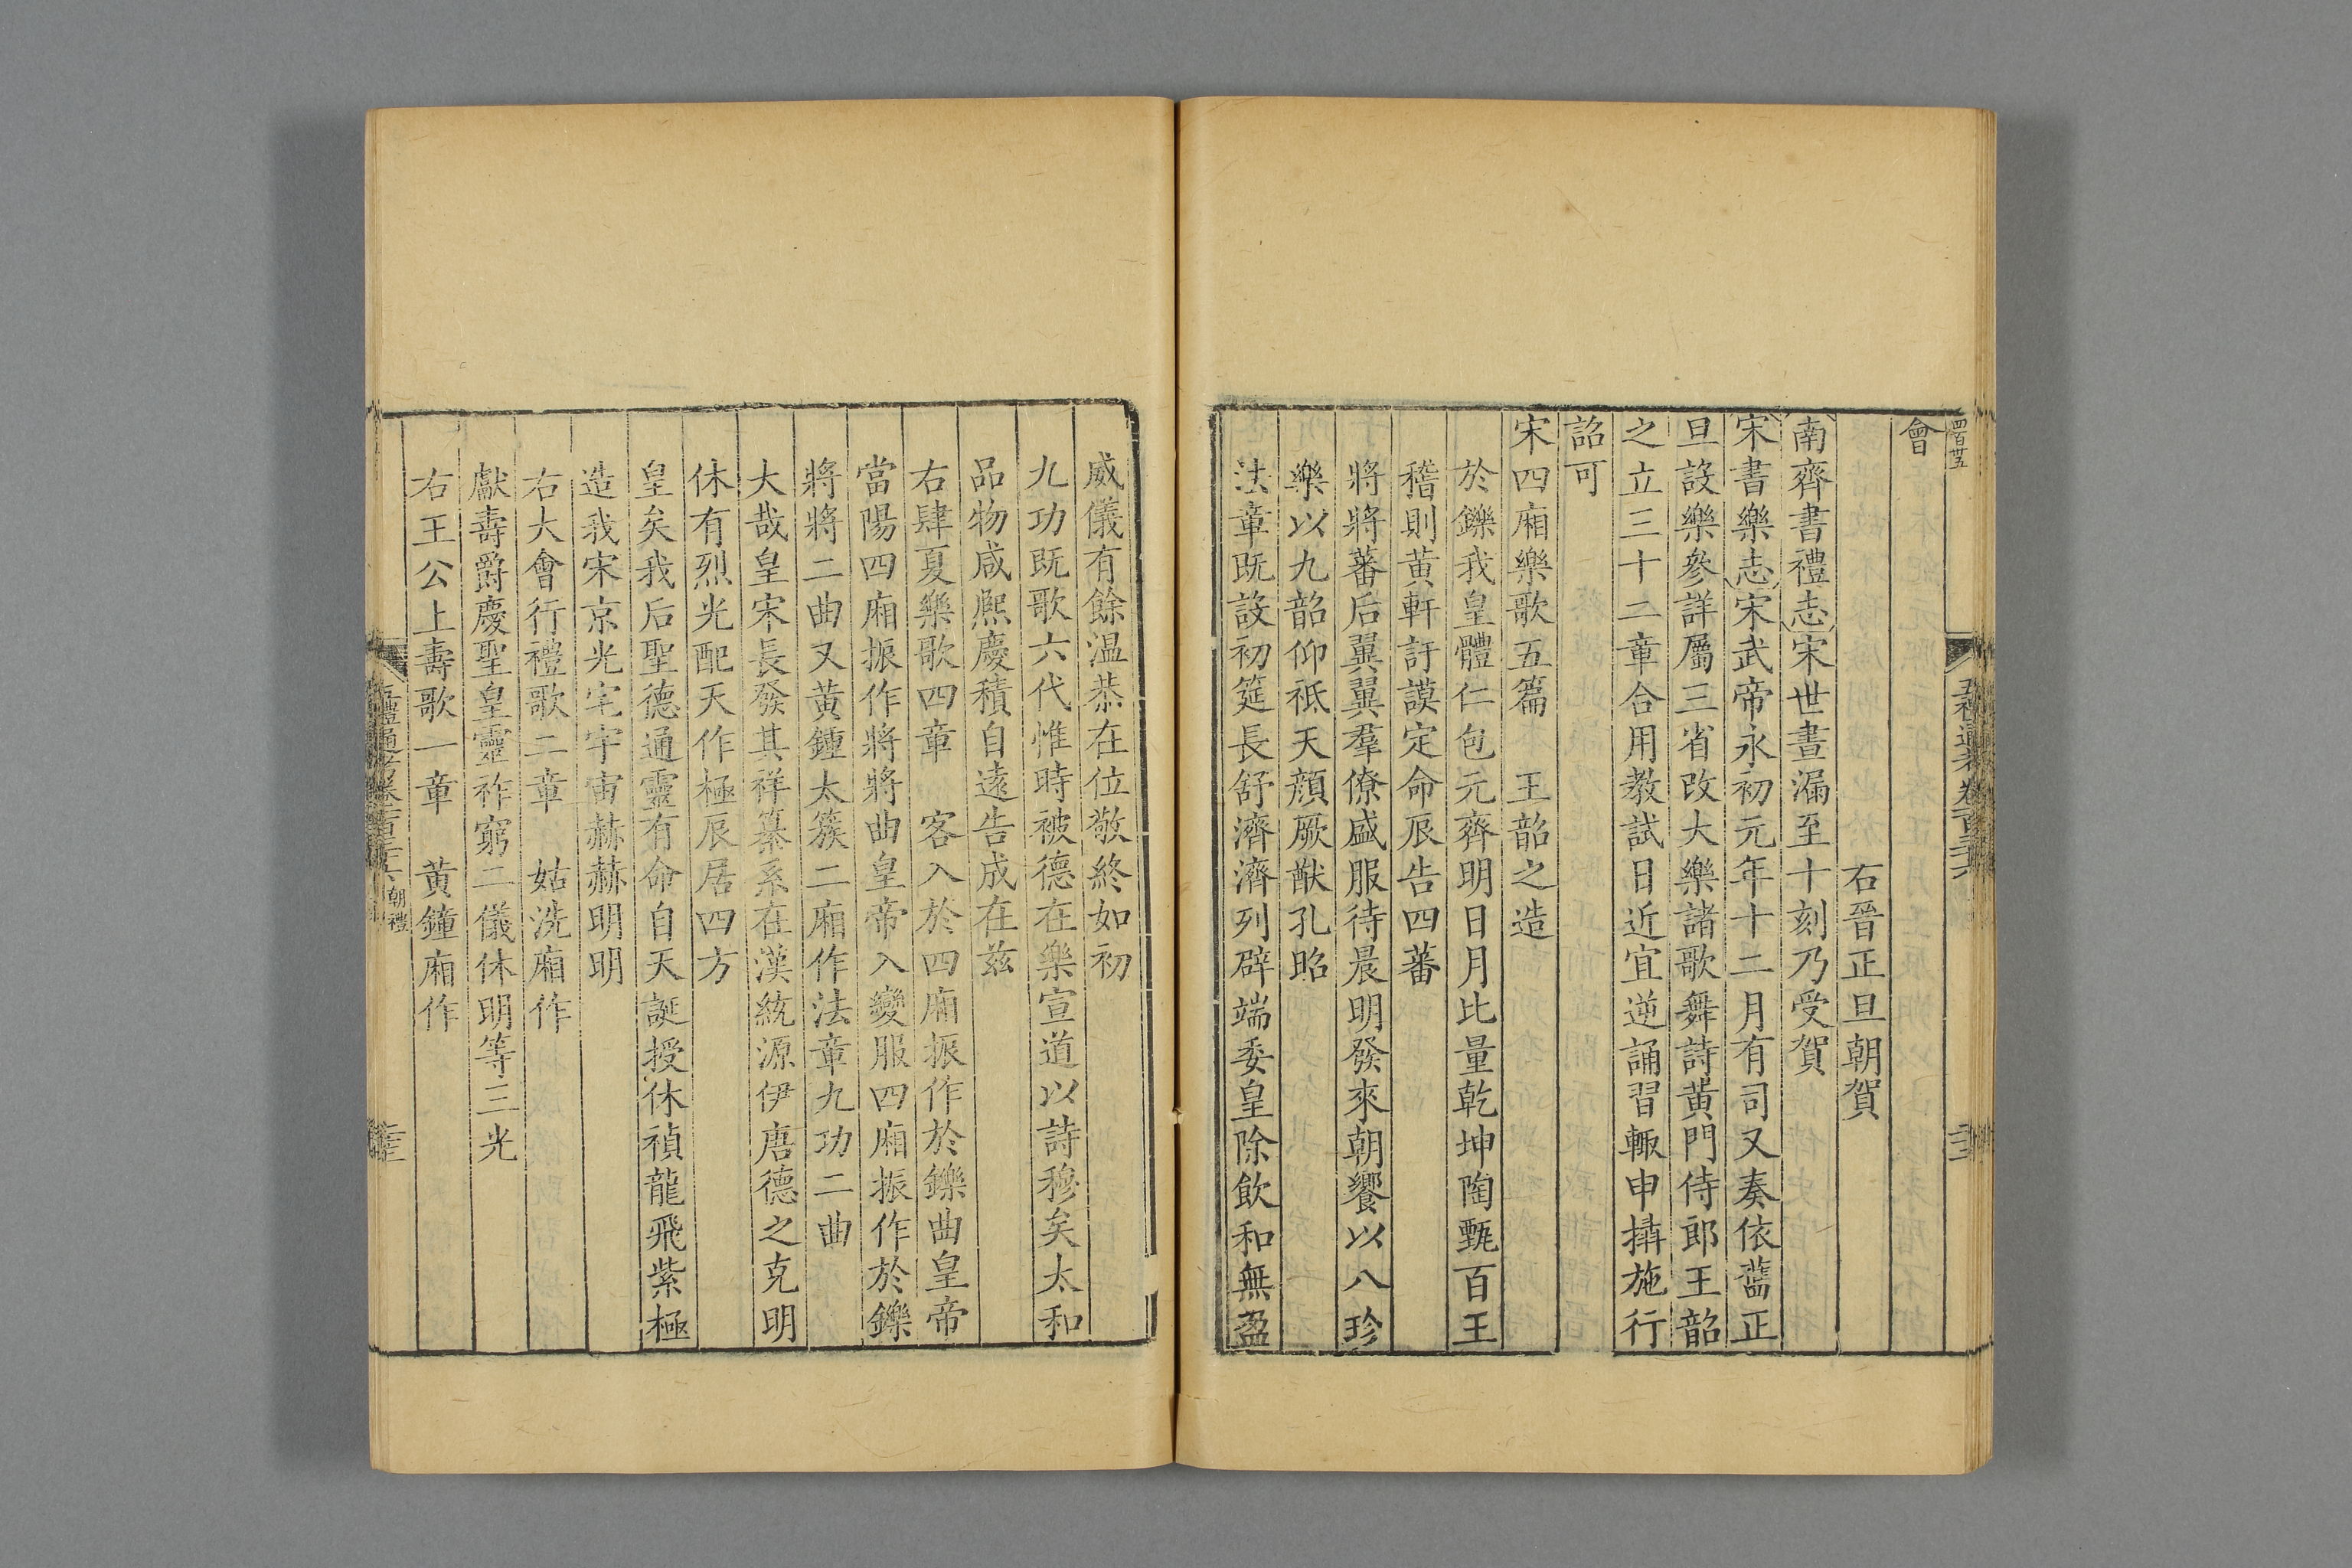 會
右晉正旦朝賀
南齊書禮志宋世晝漏至十刻乃受賀
宋書樂志宋武帝永初元年十二月有司又奏依舊正
旦設樂參詳屬三省改大樂諸歌舞詩黃門侍郎王韶
之立三十二章合用教試日近宜逆誦習輒申攝施行
詔可
宋四廂樂歌五篇　王韶之造
於鑠我皇體仁包元齊明日月比量乾坤陶甄百王
稽則黃軒訏謨定命辰告四蕃
將將蕃后翼翼羣僚盛服待晨明發來朝饗以八珍
樂以九韶仰祇天顏厥猷孔昭
法章既設初筵長舒濟濟列辟端委皇除飲和無盈
威儀有餘温恭在位敬終如初
九功既歌六代惟時被德在樂宣道以詩穆矣太和
品物咸熈慶積自遠告成在兹
右肆夏樂歌四章　客入於四廂振作於鑠曲皇帝
當陽四廂振作將將曲皇帝入變服四廂振作於鑠
將將二曲又黃鍾太簇二廂作法章九功二曲
大哉皇宋長發其祥纂系在漢統源伊唐德之克明
休有烈光配天作極辰居四方
皇矣我后聖德通靈有命自天誕授休禎龍飛紫極
造我宋京光宅宇宙赫赫明明
右大會行禮歌二章　姑洗廂作
獻壽爵慶聖皇靈祚窮二儀休明等三光
右王公上壽歌一章　黃鐘廂作
五禮通考卷一百三十六
朝禮